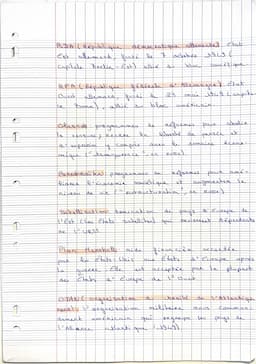 RDA (République démocratique allemande) État
Est allemand, fondé le 7 octobre 1949 (
capitale Berlin-Est) allié au bloc soviétique
RFA (République fédérale d'Allemagne) État
Ouest allemand, fondé le 23 mai 1949 (capita-
le Bonn), allié au bloc américain
Glasnost programmes de réformes pour
le
s'exprimer y compris dans le domaine écono-
mique ("transparence", en russe)
Perestroïka programme de réformes pour
l'économie soviétique et augmenter le
niveau de vie ("restructuration", en russe)
Satellisation domination de pays d'Europe de
l'Est (les États satellites) qui deviennent dépendants
de l'URSS
Plan Marshall aide financière accordée
par les États-Unis aux États d'Europe après
la guerre. Elle est acceptée par la plupart
des États d'Europe de l'Ouest
OTAN (organisation du traité de l'Atlantique
nord) organisation militaire sous comman-
dement américain qui regroupe les pays de
l'Alliance atlantique (1949)